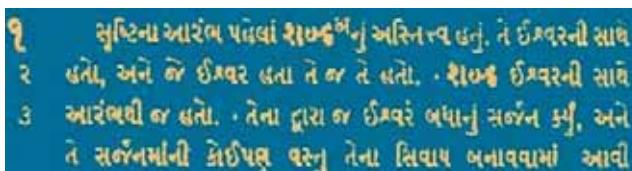 ૧ સૃષ્ટિના આરંભ પહેલાં શબ્દઅનું અસ્તિત્ત્વ હતું. તે ઈશ્વરની સાથે
૨ હતો, અને જે ઈશ્વર હતા તે જ તે હતો. · શબ્દ ઈશ્વરની સાથે
૩ આરંભથી જ હતો. · તેના દ્વારા જ ઈશ્વરે બધાનું સર્જન કર્યું, અને
તે સર્જનમાંની કોઈપણ વસ્તુ તેના સિવાય બનાવવામાં આવી